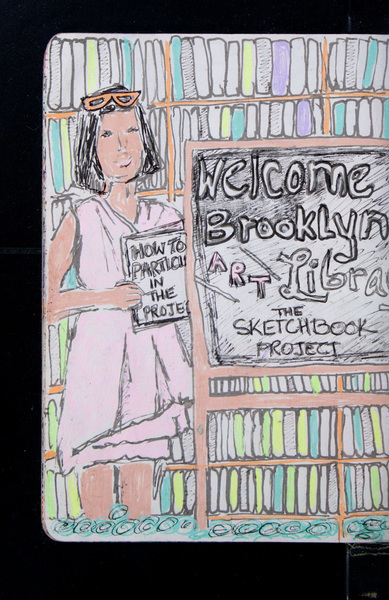 HOW TO
PARTICI
IN
THE
PROJE
Welcome
Brooklyn
ART Libra
THE
SKETCHBOOK
PROJECT